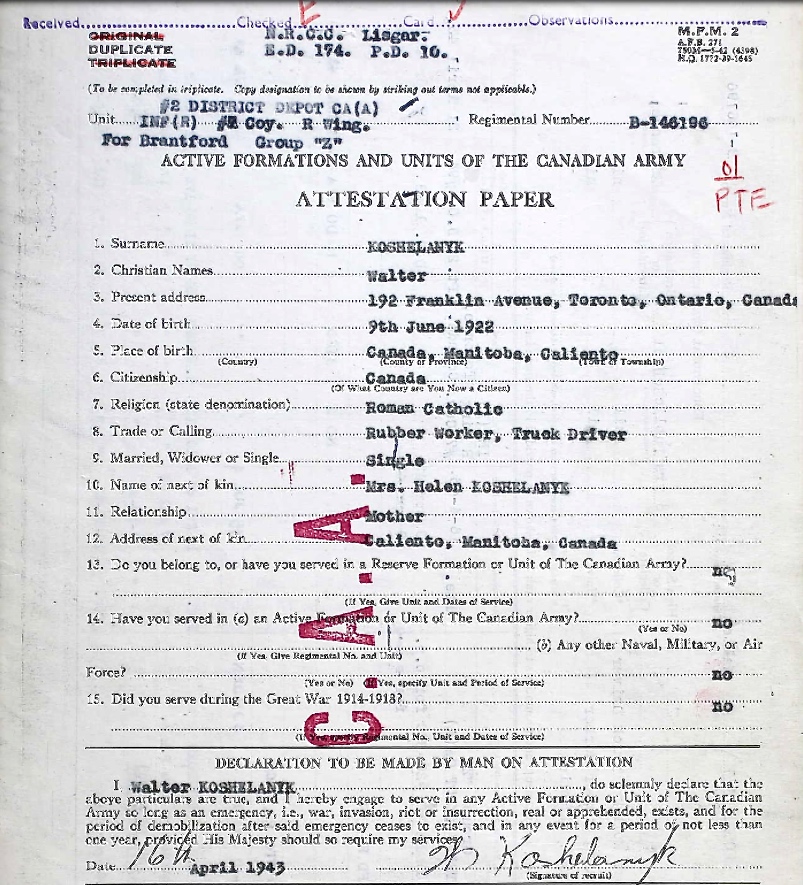 Received Checked E Card Observations
ORIGINAL N.R.C.C. Lisgar. M.F.M. 2
DUPLICATE E.D. 174. P.D. 10. A.F.B. 271
TRIPLICATE 750M—5-42 (4398)
H.Q. 1772-39-1645
(To be completed in triplicate. Copy designation to be shown by striking out terms not applicable.)
#2 DISTRICT DEPOT CA(A)
Unit INF(R) Coy. R Wing. Regimental Number B-146196
For Brantford Group "Z"
ACTIVE FORMATIONS AND UNITS OF THE CANADIAN ARMY
01
PTE
ATTESTATION PAPER
1. Surname KOSHELANYK
2. Christian Names Walter
3. Present address 192 Franklin Avenue, Toronto, Ontario, Canada
4. Date of birth 9th June 1922
5. Place of birth Canada, Manitoba, Caliento
(Country) (County or Province) (Town or Township)
6. Citizenship Canada
(Of What Country are You Now a Citizen)
7. Religion (state denomination) Roman Catholic
8. Trade or Calling Rubber Worker, Truck Driver
9. Married, Widower or Single Single
10. Name of next of kin Mrs. Helen KOSHELANYK
11. Relationship Mother
12. Address of next of kin Caliento, Manitoba, Canada
13. Do you belong to, or have you served in a Reserve Formation or Unit of The Canadian Army? no
(If Yes, Give Unit and Dates of Service)
14. Have you served in (a) an Active Formation or Unit of The Canadian Army? no
(Yes or No)
(b) Any other Naval, Military, or Air
(If Yes, Give Regimental No. and Unit)
Force? no
(Yes or No) (If Yes, specify Unit and Period of Service)
15. Did you serve during the Great War 1914-1918? no
(If Yes, specify Regimental No., Unit and Dates of Service)
C.A.A.
DECLARATION TO BE MADE BY MAN ON ATTESTATION
I, Walter KOSHELANYK, do solemnly declare that the
above particulars are true, and I hereby engage to serve in any Active Formation or Unit of The Canadian
Army so long as an emergency, i.e., war, invasion, riot or insurrection, real or apprehended, exists, and for the
period of demobilization after said emergency ceases to exist, and in any event for a period of not less than
one year, provided His Majesty should so require my services.
Date 16th April 1943 W Koshelanyk
(Signature of recruit)